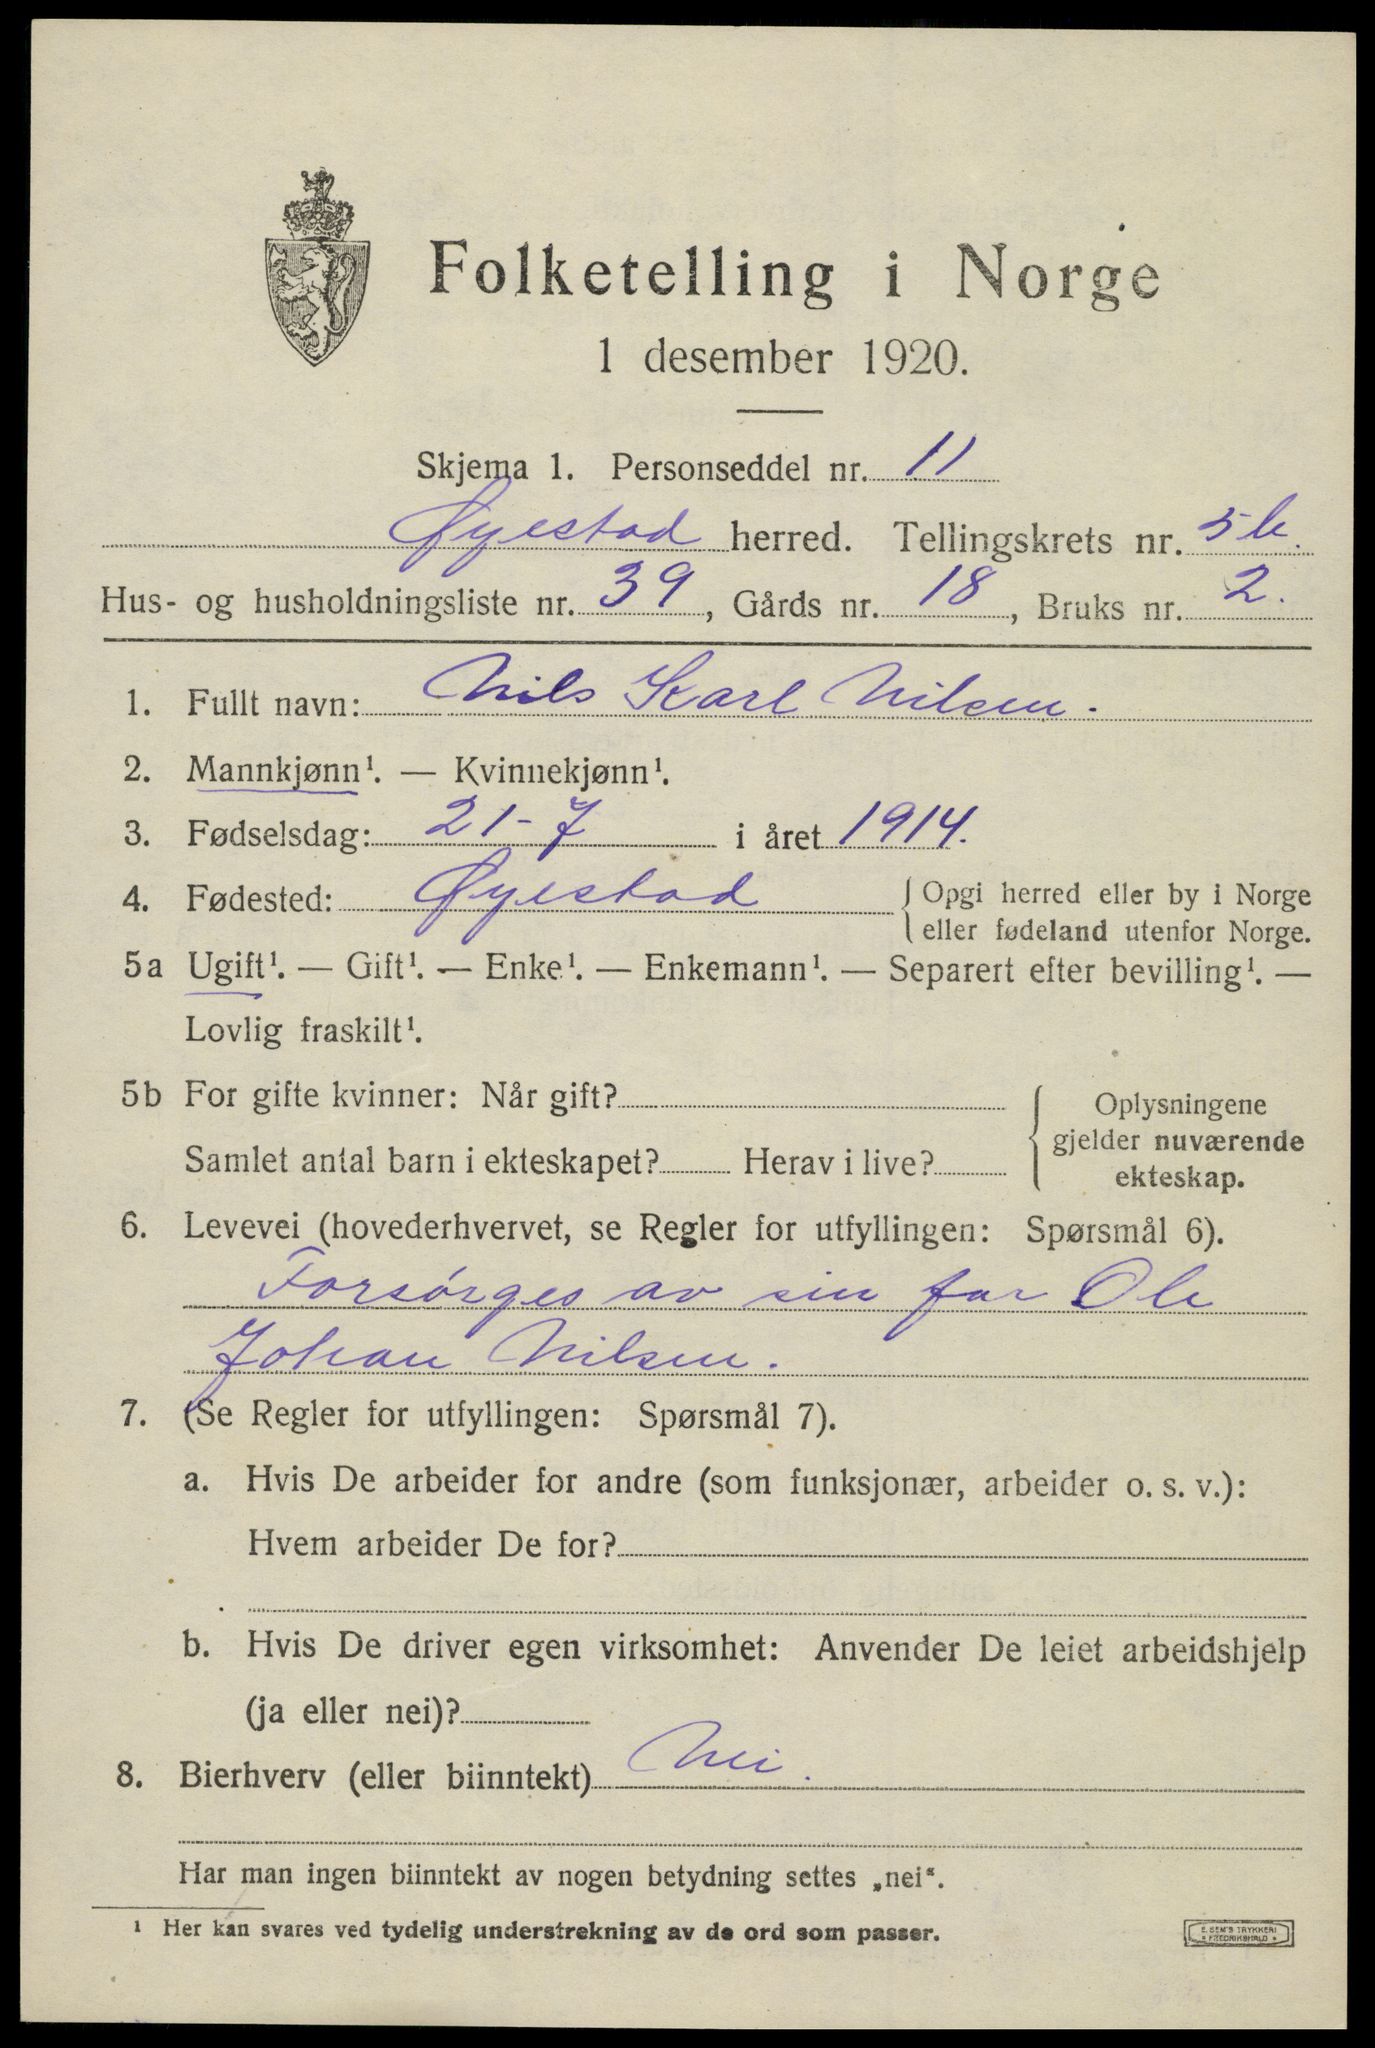 Folketelling i Norge
1 desember 1920.
Skjema 1. Personseddel nr. 11
Øyestad herred. Tellingskrets nr. 5 b.
Hus- og husholdningsliste nr. 39, Gårds nr. 18, Bruks nr. 2.
1. Fullt navn: Nils Karl Nilsen.
2. Mannkjønn¹. — Kvinnekjønn¹.
3. Fødselsdag: 21-7 i året 1914.
4. Fødested: Øyestad { Opgi herred eller by i Norge
eller fødeland utenfor Norge.
5a Ugift¹. — Gift¹. — Enke¹. — Enkemann¹. — Separert efter bevilling¹. —
Lovlig fraskilt¹.
5b For gifte kvinner: Når gift? { Oplysningene
gjelder nuværende
Samlet antal barn i ekteskapet? Herav i live? ekteskap.
6. Levevei (hovederhvervet, se Regler for utfyllingen: Spørsmål 6).
Forsørges av sin far Ole
Johan Nilsen.
7. (Se Regler for utfyllingen: Spørsmål 7).
a. Hvis De arbeider for andre (som funksjonær, arbeider o. s. v.):
Hvem arbeider De for?
b. Hvis De driver egen virksomhet: Anvender De leiet arbeidshjelp
(ja eller nei)?
8. Bierhverv (eller biinntekt) Nei.
Har man ingen biinntekt av nogen betydning settes „nei“.
¹ Her kan svares ved tydelig understrekning av de ord som passer.
E. SEM'S TRYKKERI
• FREDRIKSHALD •